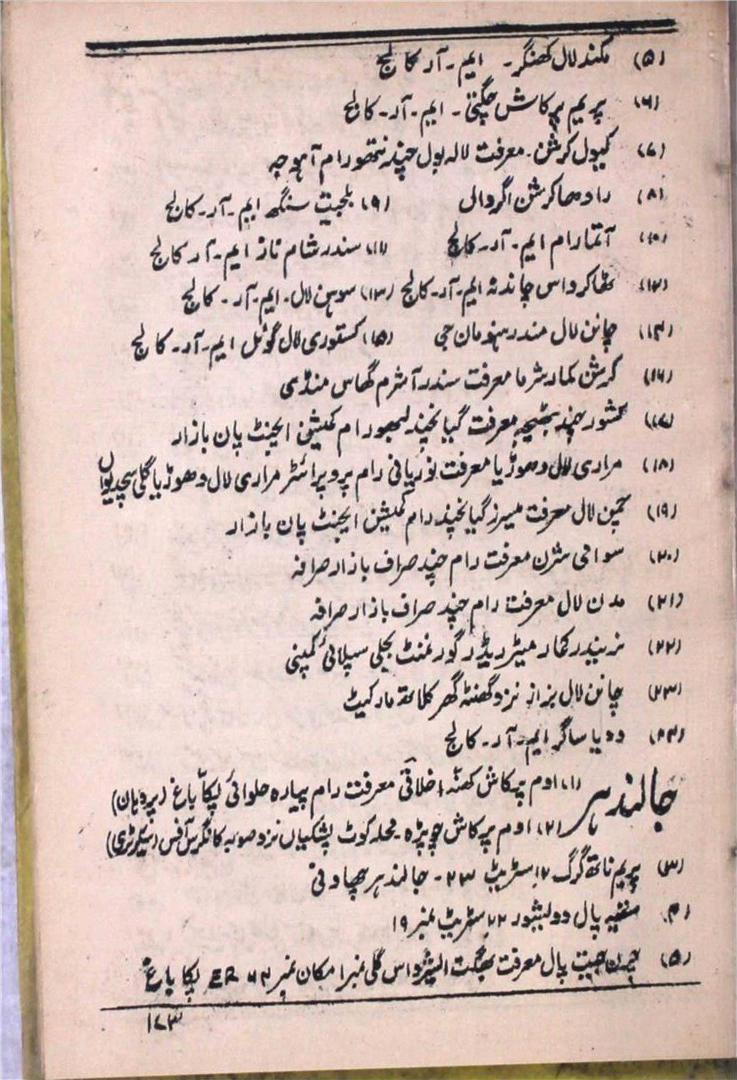 (۵) مکند لال کھنگر۔ ایم۔آر کالج
(۶) پریم پرکاش چگتی۔ ایم۔آر۔کالج
(۷) کیول کرشن۔ معرفت لالہ بول چند نتھو رام آہوجہ
(۸) رادھا کرشن اگروال (۹) بلجیت سنگھ ایم۔آر۔کالج
(۱۰) آتما رام ایم۔آر۔کالج (۱۱) سندر شام ناز ایم۔آر کالج
(۱۲) ٹھاکر داس چاندنہ ایم۔آر۔کالج (۱۳) سوہن لال۔ایم۔آر۔ کالج
(۱۴) چانن لال مندر ہنومان جی (۱۵) کستوری لال گوئل ایم۔آر۔کالج
(۱۶) کرشن کمار شرما معرفت سندر آشرم گھاس منڈی
(۱۷) کشور چند بٹھیجہ معرفت گیانچند لبھو رام کمیشن ایجنٹ پان بازار
(۱۸) مراری لال ودھوڑیا معرفت نوریاتی رام پروپرائٹر مراری لال ودھوڑیا گلی سچدیواں
(۱۹) چمن لال معرفت میسرز گیانچند رام کمیشن ایجنٹ پان بازار
(۲۰) سوامی شرن معرفت رام چند صراف بازار صرافہ
(۲۱) مدن لال معرفت رام چند صراف بازار صرافہ
(۲۲) نریندر کمار میٹر ریڈر گورنمنٹ بجلی سپلائی کمپنی
(۲۳) چانن لال بزاز نزد گھنٹہ گھر کلاتھ مارکیٹ
(۲۴) ودیا ساگر ایم۔آر۔ کالج
جالندہر (۱) اوم پرکاش کھنہ اخلاقی معرفت رام پیارہ حلوائی پکا باغ (پردہان)
(۲) اوم پرکاش چوپڑہ۔محلہ کوٹ پشکیاں نزد صوبہ کانگرس آفس (سیکرٹری)
(۳) پریم ناتھ گرگ ۱۷ سٹریٹ ۲۳۔ جالندہر چھاونی
(۴) ستیہ پال دولیشور ۲۲ سٹریٹ نمبر ۱۹
(۵) چرن جیت پال معرفت بھگت ایشرداس گلی نمبر ۱ مکان نمبر ER ۷۴ پکا باغ
۱۷۳